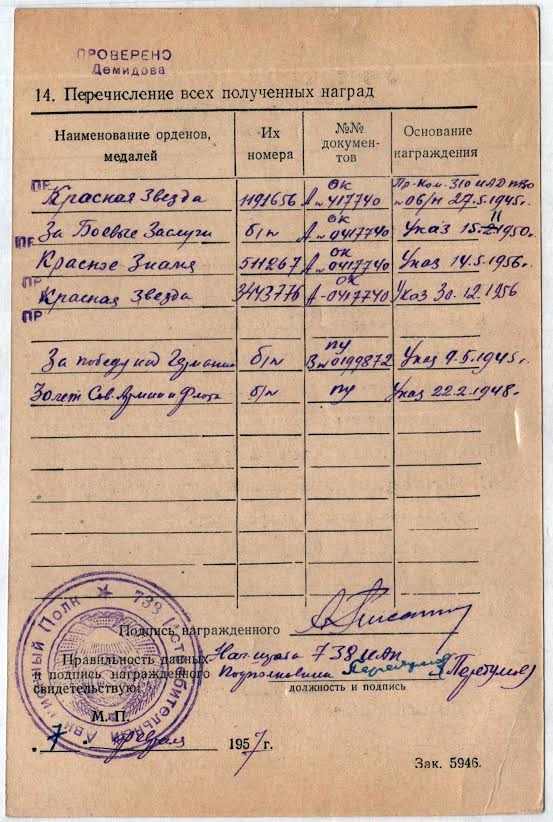 ПРОВЕРЕНО
Демидова
14. Перечисление всех полученных наград
Наименование орденов, медалей
Их номера
№№ документов
Основание награждения
ПР Красная Звезда 1191656 ОК А № 417740 Пр. Ком. 310 ИАД ПВО № 06/н 27.5.1945г.
ПР За Боевые Заслуги б/н ОК А № 0417740 Указ 15.11.1950г.
ПР Красное Знамя 511267 ОК А № 0417740 Указ 14.5.1956г.
ПР Красная Звезда 3443776 ОК А-0417740 Указ 30.12.1956
За победу над Германи б/н ПУ В № 0199872 Указ 9.5.1945г.
30 лет Сов. Армии и Флота б/н ПУ Указ 22.2.1948г.
Подпись награжденного
Правильность данных
и подпись награжденного
свидетельствую:
Нач. штаба 738 иап
Подполковник
должность и подпись
М. П.
7 февраля 1957 г.
738 Истребительный Авиационный Полк
Зак. 5946.